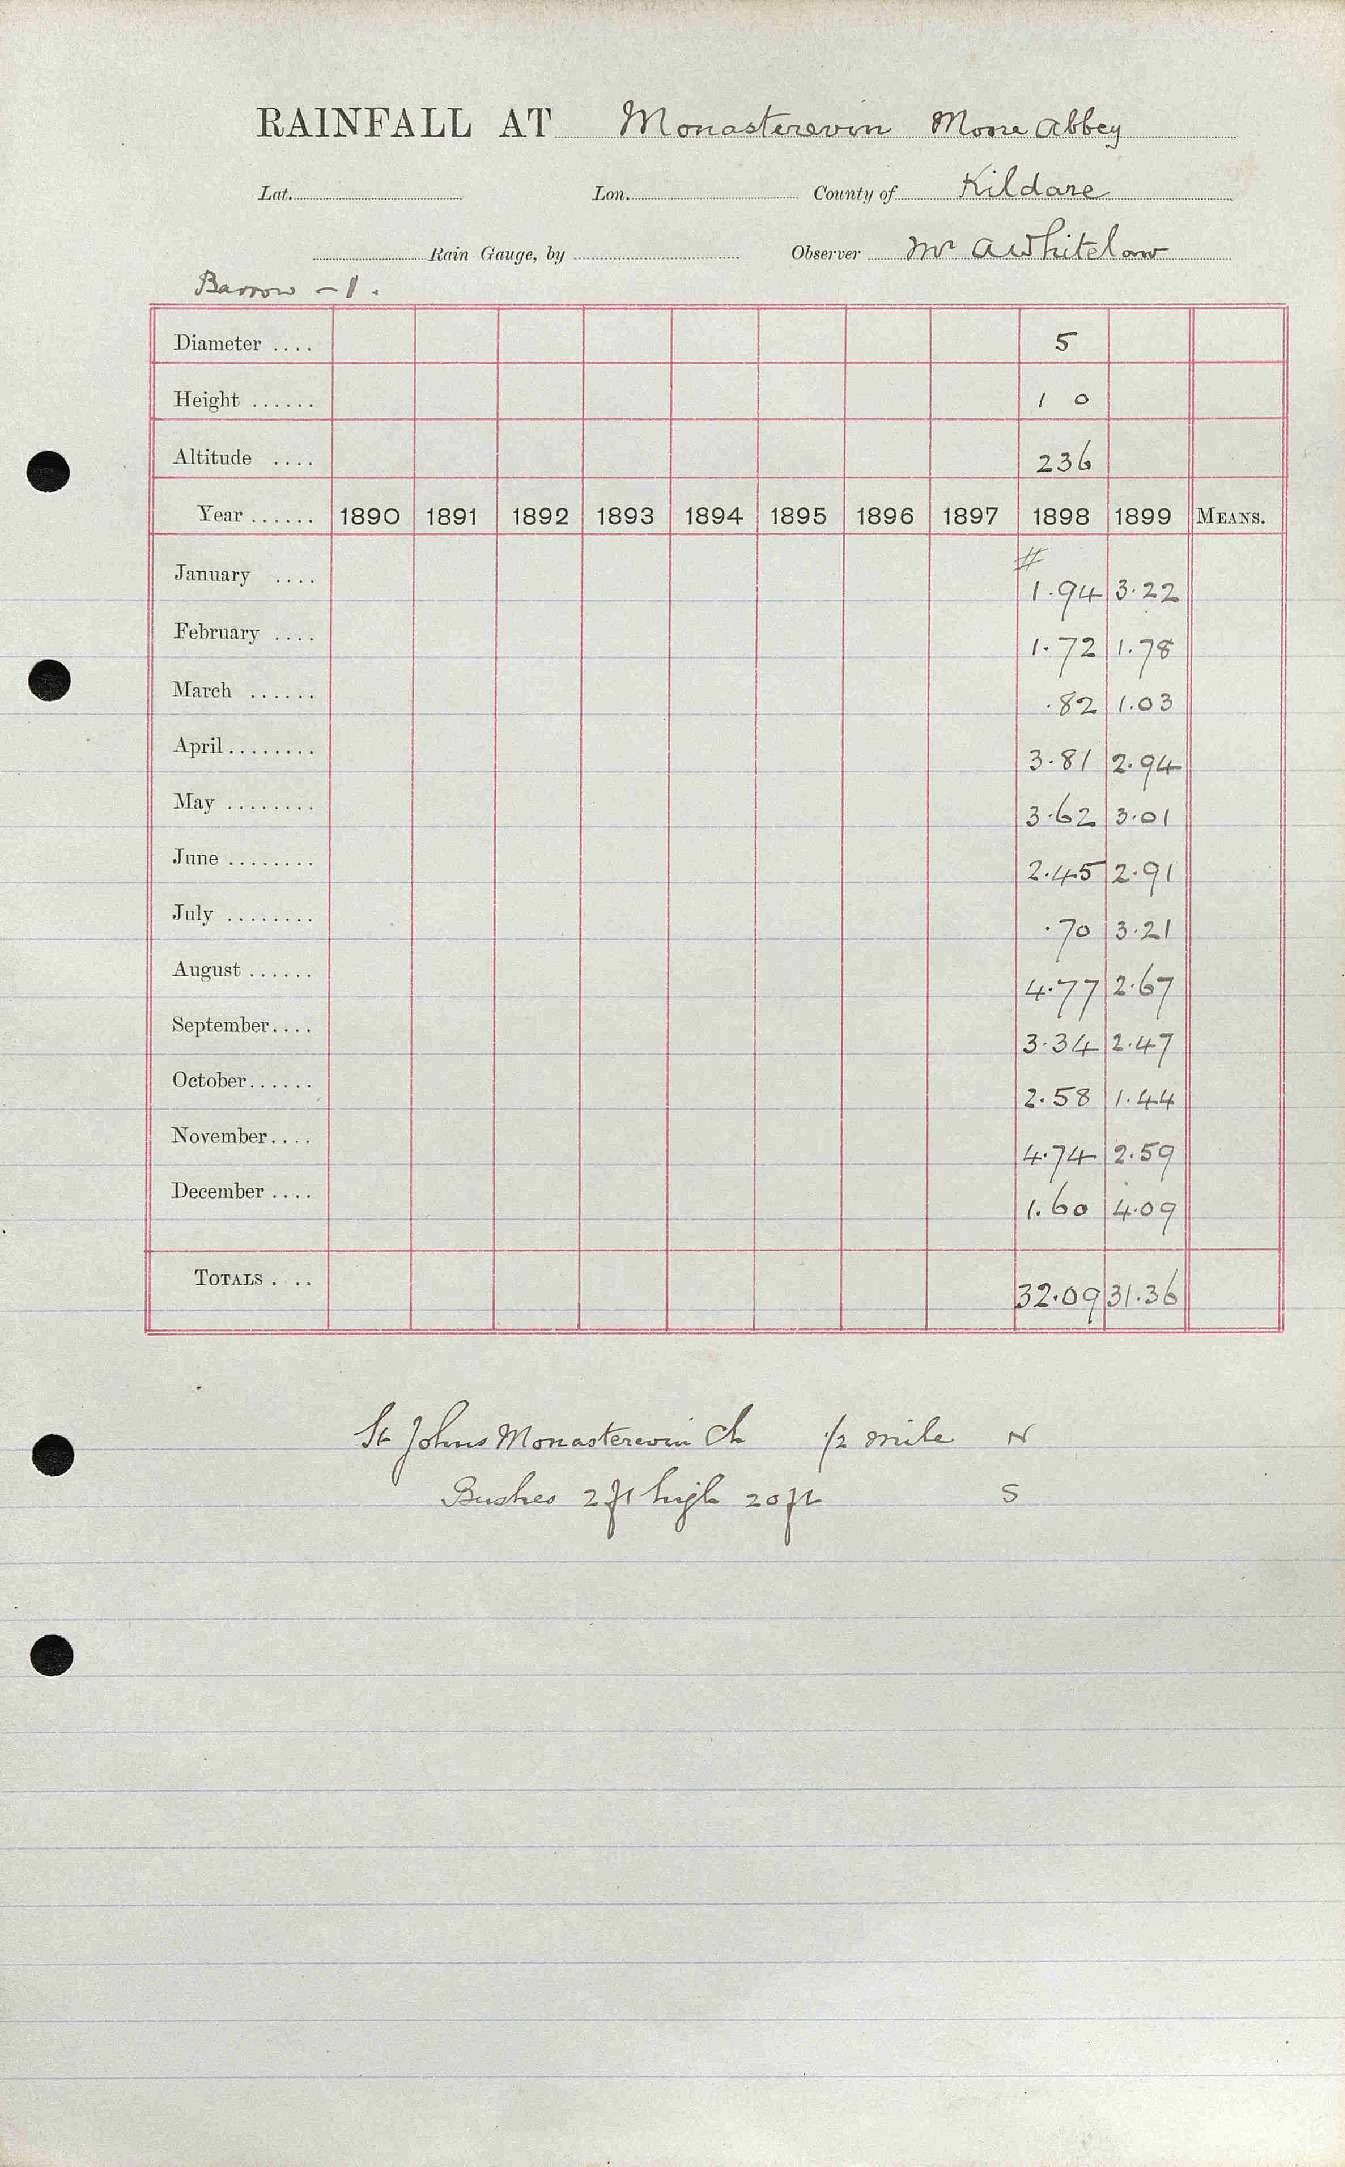 RAINFALL AT Monasterevin Moore Abbey
Lat. Lon. County of Kildare
Rain Gauge, by Observer Mr A Whitelaw
Barrow - 1.
Diameter .... 5
Height ...... 1 0
Altitude .... 236
Year ...... 1890 1891 1892 1893 1894 1895 1896 1897 1898 1899 MEANS.
#
January .... 1.94 3.22
February .... 1.72 1.78
March ...... .82 1.03
April........ 3.81 2.94
May ........ 3.62 3.01
June ........ 2.45 2.91
July ........ .70 3.21
August ...... 4.77 2.67
September.... 3.34 2.47
October...... 2.58 1.44
November.... 4.74 2.59
December .... 1.60 4.09
TOTALS . .. 32.09 31.36
St Johns Monasterevin Ch 1/2 mile N
Bushes 2 ft high 20 ft S